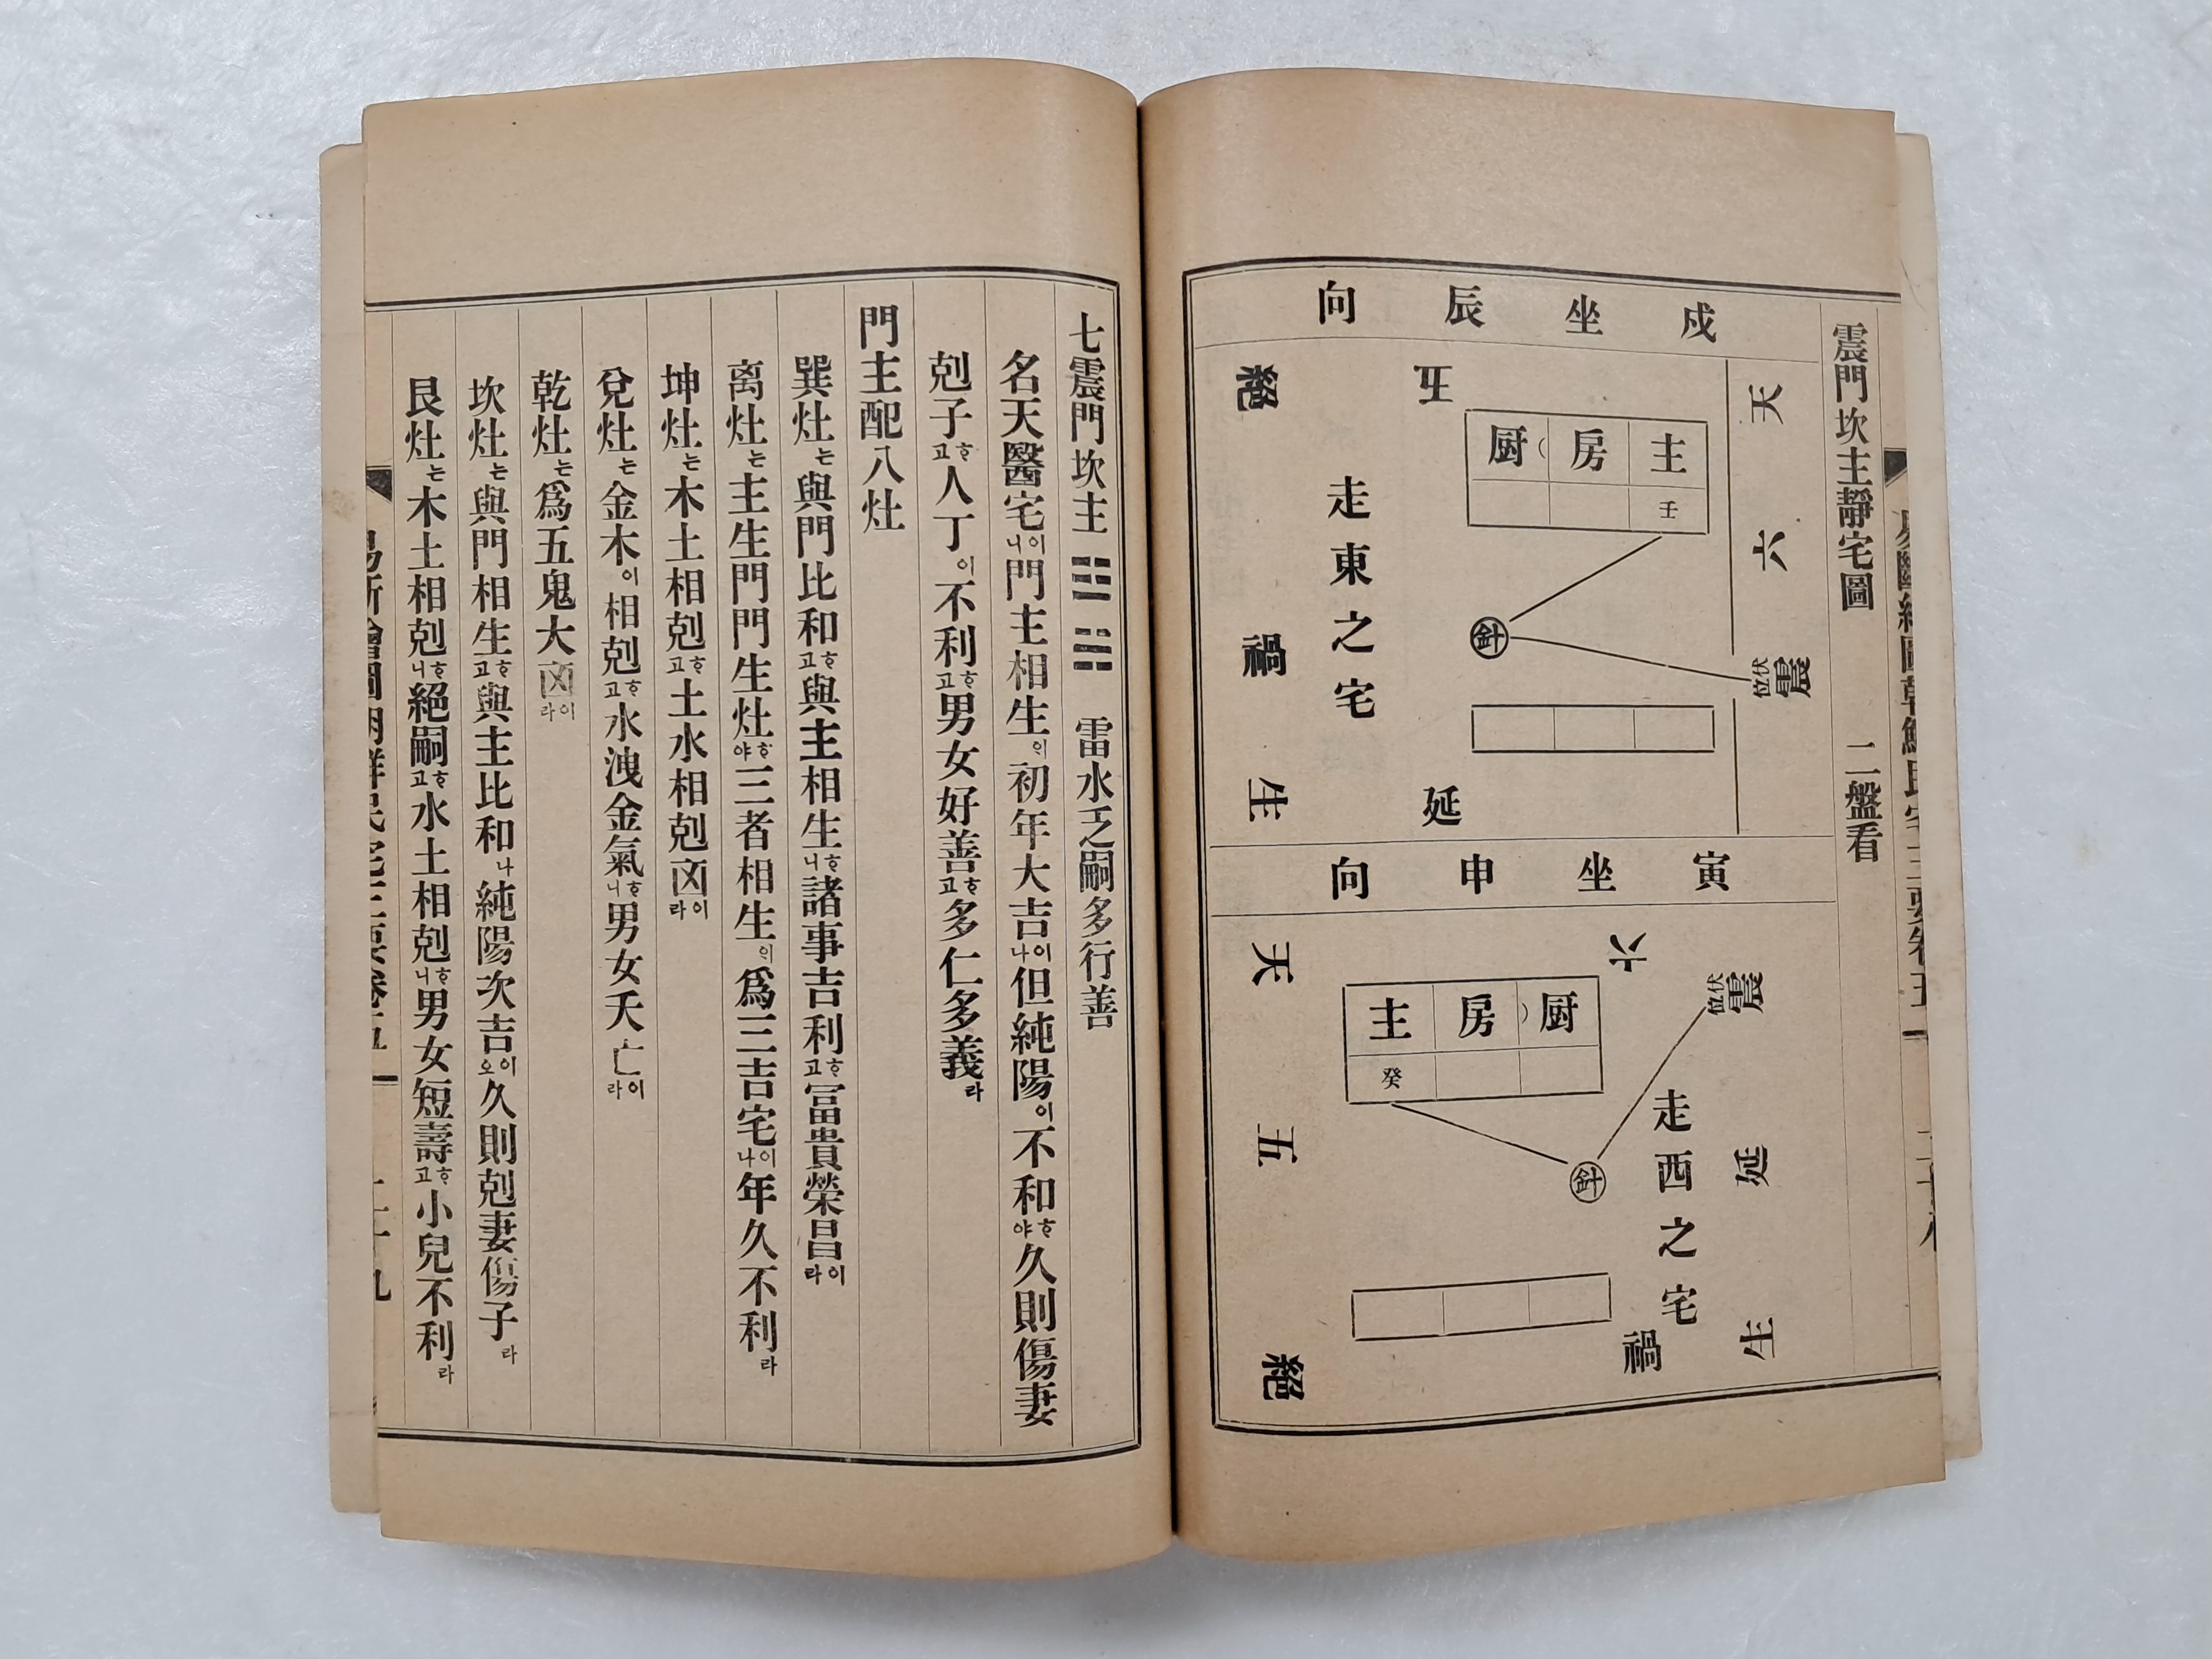 震門坎主靜宅圖 二盤看
戌坐辰向
天
六
震
伏位
生
延
禍
絕
五
主房厨
壬
針
走東之宅
寅坐申向
六
震
伏位
天
五
絕
延
生
禍
主房厨
癸
針
走西之宅
七震門坎主 ䷧ 雷水乏嗣多行善
名天醫宅이니門主相生의初年大吉이나但純陽이不和ᄒᆞ야久則傷妻
剋子ᄒᆞ고人丁이不利ᄒᆞ고男女好善ᄒᆞ고多仁多義라
門主配八灶
巽灶는與門比和ᄒᆞ고與主相生ᄒᆞ니諸事吉利ᄒᆞ고冨貴榮昌이라
离灶는主生門門生灶ᄒᆞ야三者相生의爲三吉宅이나年久不利라
坤灶는木土相剋ᄒᆞ고土水相剋凶이라
兌灶는金木이相剋ᄒᆞ고水洩金氣ᄒᆞ니男女夭亡이라
乾灶는爲五鬼大凶이라
坎灶는與門相生ᄒᆞ고與主比和나純陽次吉이오久則剋妻傷子라
艮灶는木土相剋ᄒᆞ니絕嗣ᄒᆞ고水土相剋ᄒᆞ니男女短壽ᄒᆞ고小兒不利라